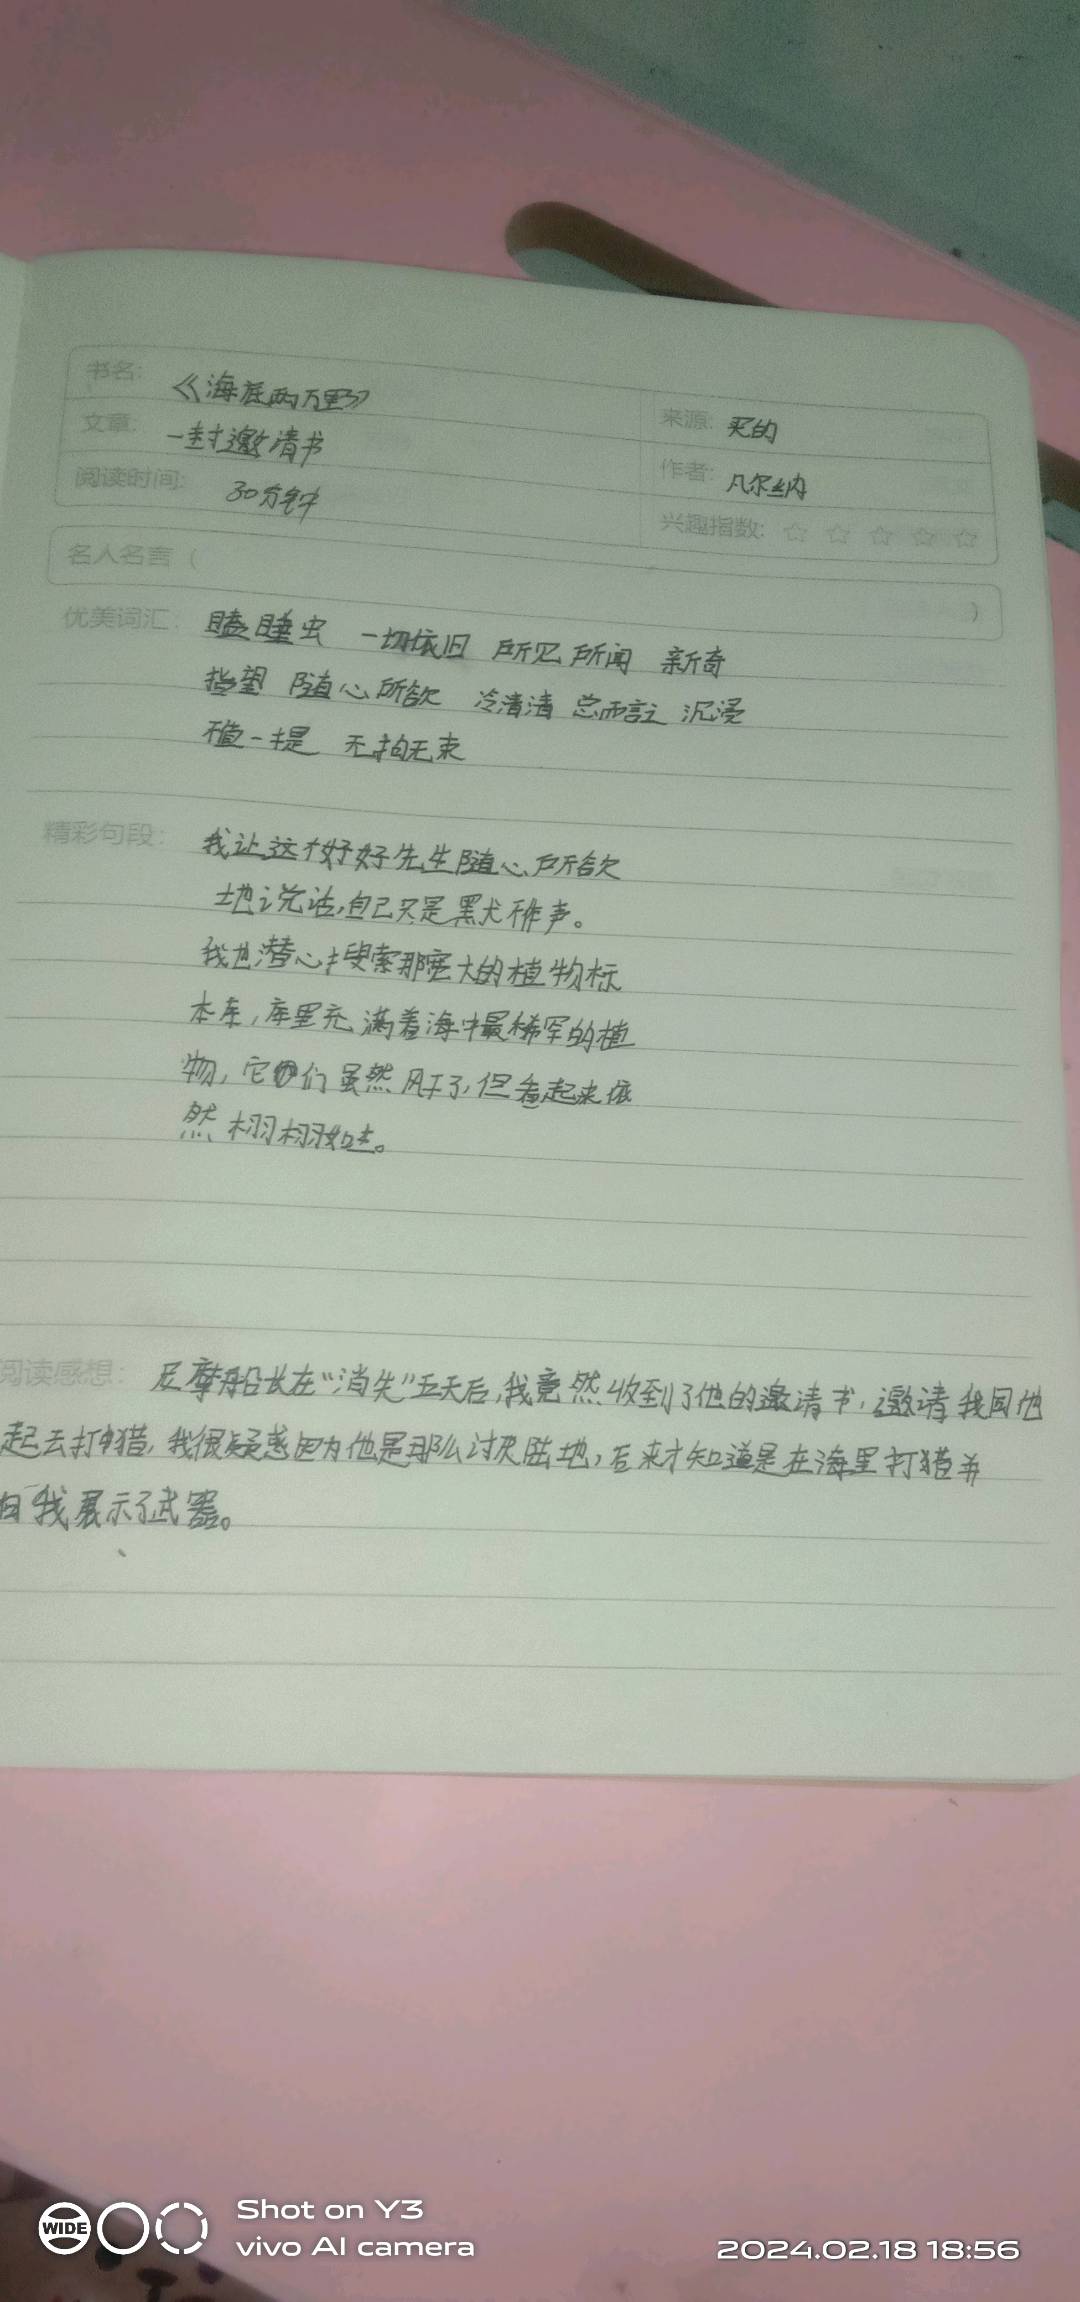 书名: 《海底两万里》
来源: 买的
文章: 一封邀请书
作者: 凡尔纳
阅读时间: 30分钟
兴趣指数: ☆ ☆ ☆ ☆ ☆
名人名言 ( )
优美词汇: 瞌睡虫 一切依旧 所见所闻 新奇
指望 随心所欲 冷清清 总而言之 沉浸
不值一提 无拘无束
精彩句段: 我让这个好好先生随心所欲
地说话,自己只是黑犬不作声。
我也潜心搜索那宽大的植物标
本库,库里充满着海中最稀罕的植
物,它们虽然风干了,但看起来依
然栩栩如生。
阅读感想: 尼摩船长在“消失”五天后,我竟然收到了他的邀请书,邀请我同他
起去打猎,我很疑惑因为他是那么讨厌陆地,后来才知道是在海里打猎并
向我展示了武器。
WIDE
Shot on Y3
vivo AI camera
2024.02.18 18:56